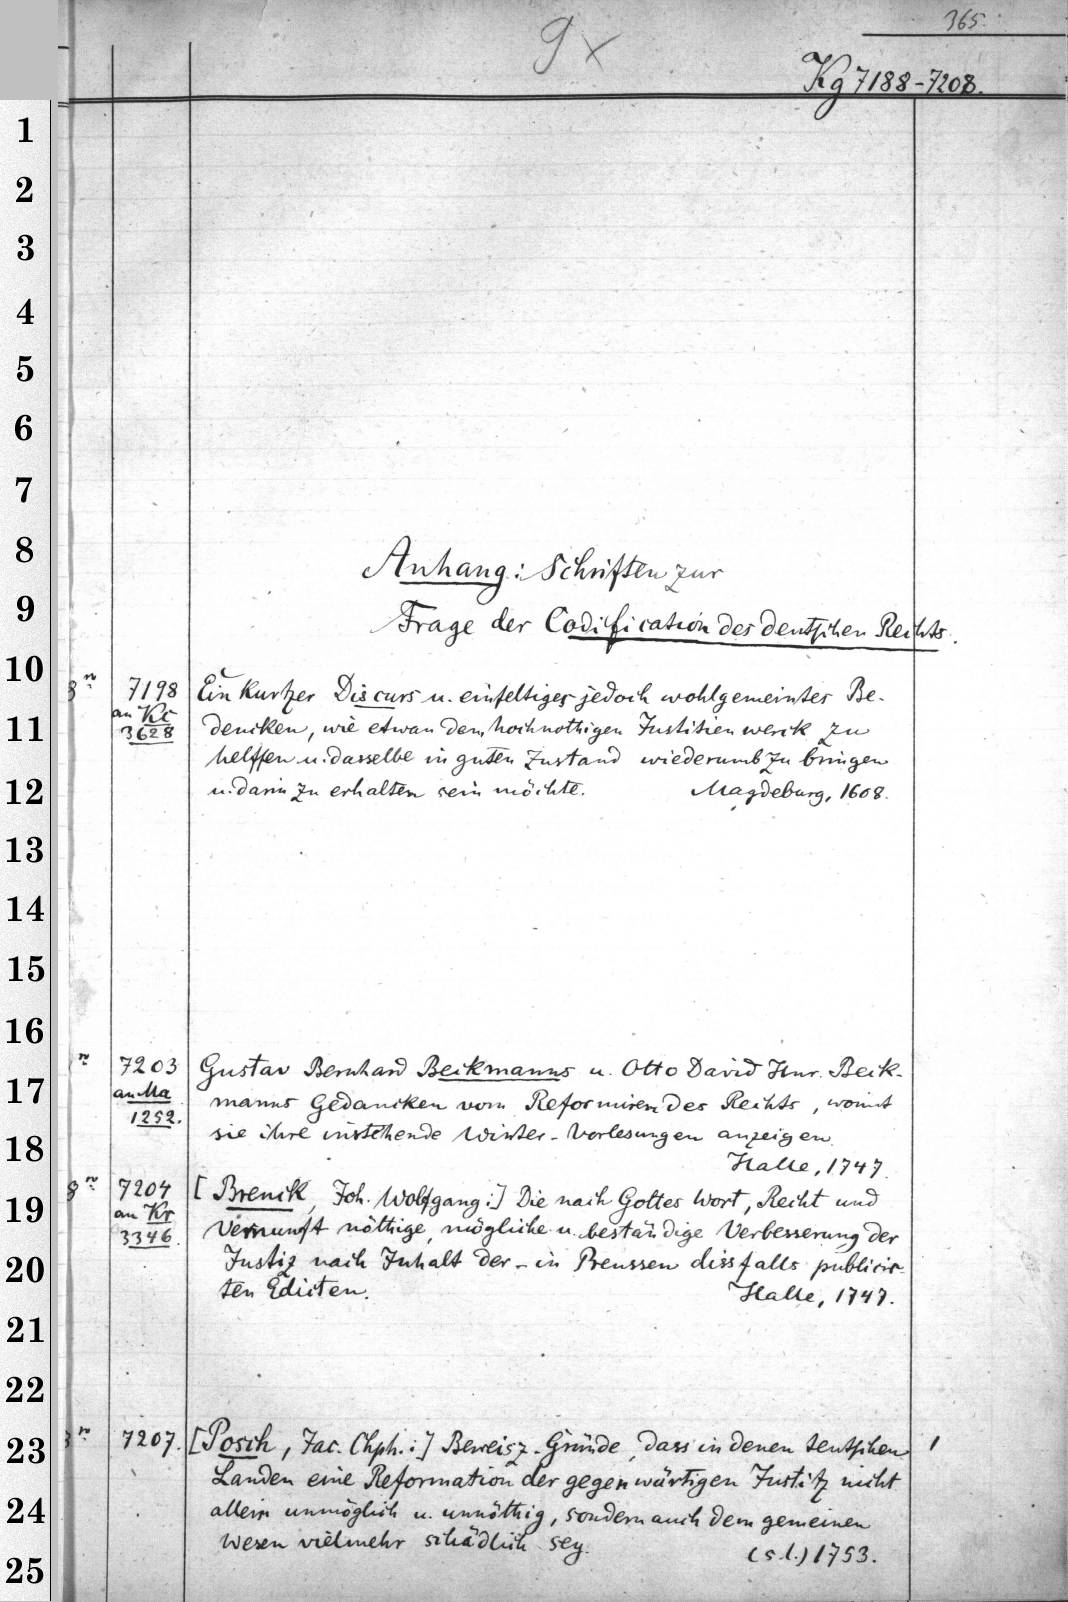 365.
9x
Kg 7188-7208.
1
2
3
4
5
6
7
8
9
10
11
12
13
14
15
16
17
18
19
20
21
22
23
24
25
Anhang: Schriften zur
Frage der Codification des deutschen Rechts.
8° 7198 Ein kurtzer Discurs u. einfeltiges jedoch wohlgemeintes Be-
an Kc dencken, wie etwan dem hochnothigen Justitien werck zu
3628 helffen u. dasselbe in guten Zustand wiederumb zu bringen
u. darin zu erhalten sein möchte. Magdeburg, 1608.
7203 Gustav Bernhard Beckmanns u. Otto David Hnr. Beck-
an Ma manns Gedancken vom Reformiren des Rechts, womit
1252. sie ihre instehende Winter-Vorlesungen anzeigen.
Halle, 1747.
8° 7204 [Brenck, Joh. Wolfgang:] Die nach Gottes Wort, Recht und
an Kr Vernunft nöthige, mögliche u. beständige Verbesserung der
3346. Justiz nach Inhalt der - in Preussen dissfalls publicir-
ten Edicten. Halle, 1747.
7207. [Posch, Jac. Chph.:] Beweisz-Gründe, dass in denen teutschen 1
Landen eine Reformation der gegenwärtigen Justitz nicht
allein unmöglich u. unnöthig, sondern auch dem gemeinen
Wesen vielmehr schädlich sey. (s.l.) 1753.